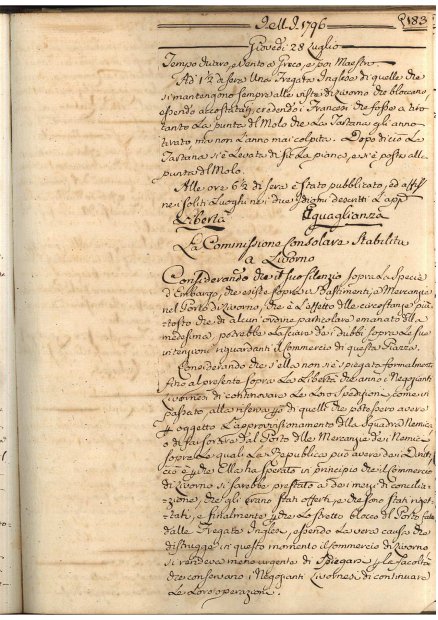 Dell'A. 1796 183
Giovedì 28 Luglio
Tempo chiaro, e Vento a Greco, e poi Maestro.
Ad 1½ di sera Una Fregata Inglese di quelle che
si mantengono sempre alle viste di Livorno che bloccano,
essendo accostatasi, credendo i Francesi che fosse a tiro
tanto la punta del Molo che La Tartana gli anno
tirato, ma non l'anno mai colpita. Dopo di ciò La
Tartana s'è Levata di sotto La piance, e s'è posta alla
punta del Molo.
Alle ore 6½ di sera è stato pubblicato, ed affisse
ne i soliti Luoghi ne i due Idiomi
Libertà Eguaglianza
La Commissione Consolare Stabilita
a Livorno
Considerando che il suo silenzio sopra La Specie
d'Embargo, che esiste sopra a Bastimenti, e Mercanzie
nel Porto di Livorno, che è L'effetto delle circostanze piut
tosto che di alcun ordine particolare emanato dalla
medesima, potrebbe Lasciare de i dubbi sopra Le sue
intenzioni riguardanti il Commercio di questa Piazza.
Considerando che s'ella non si è spiegata formalmente
fino al presente sopra La Libertà che anno i Negozianti
Livornesi di continovare Le Loro Spedizioni, come in
passato, alla riserva di quelle che potessero avere
per oggetto L'approvisionamento della Squadra Nemica
o di trasportare dal Porto delle Mercanzie de i Nemici
sopra Le quali La Repubblica può avere de i Diritti
ciò è perche Ella ha sperato in principio che il commercio
di Livorno si sarebbe prestato a de i mezzi di concilia-
zione, che gli erano stati offerti, e che sono stati riget-
tati, e finalmente perche Lo stretto blocco del Porto fatto
dalle Fregate Inglesi, essendo La vera causa che
distrugge in questo momento il Commercio di Livorno
si rendeva meno urgente di Spiegare La facoltà
che conservano i Negozianti Livornesi di continuare
Le Loro operazioni.